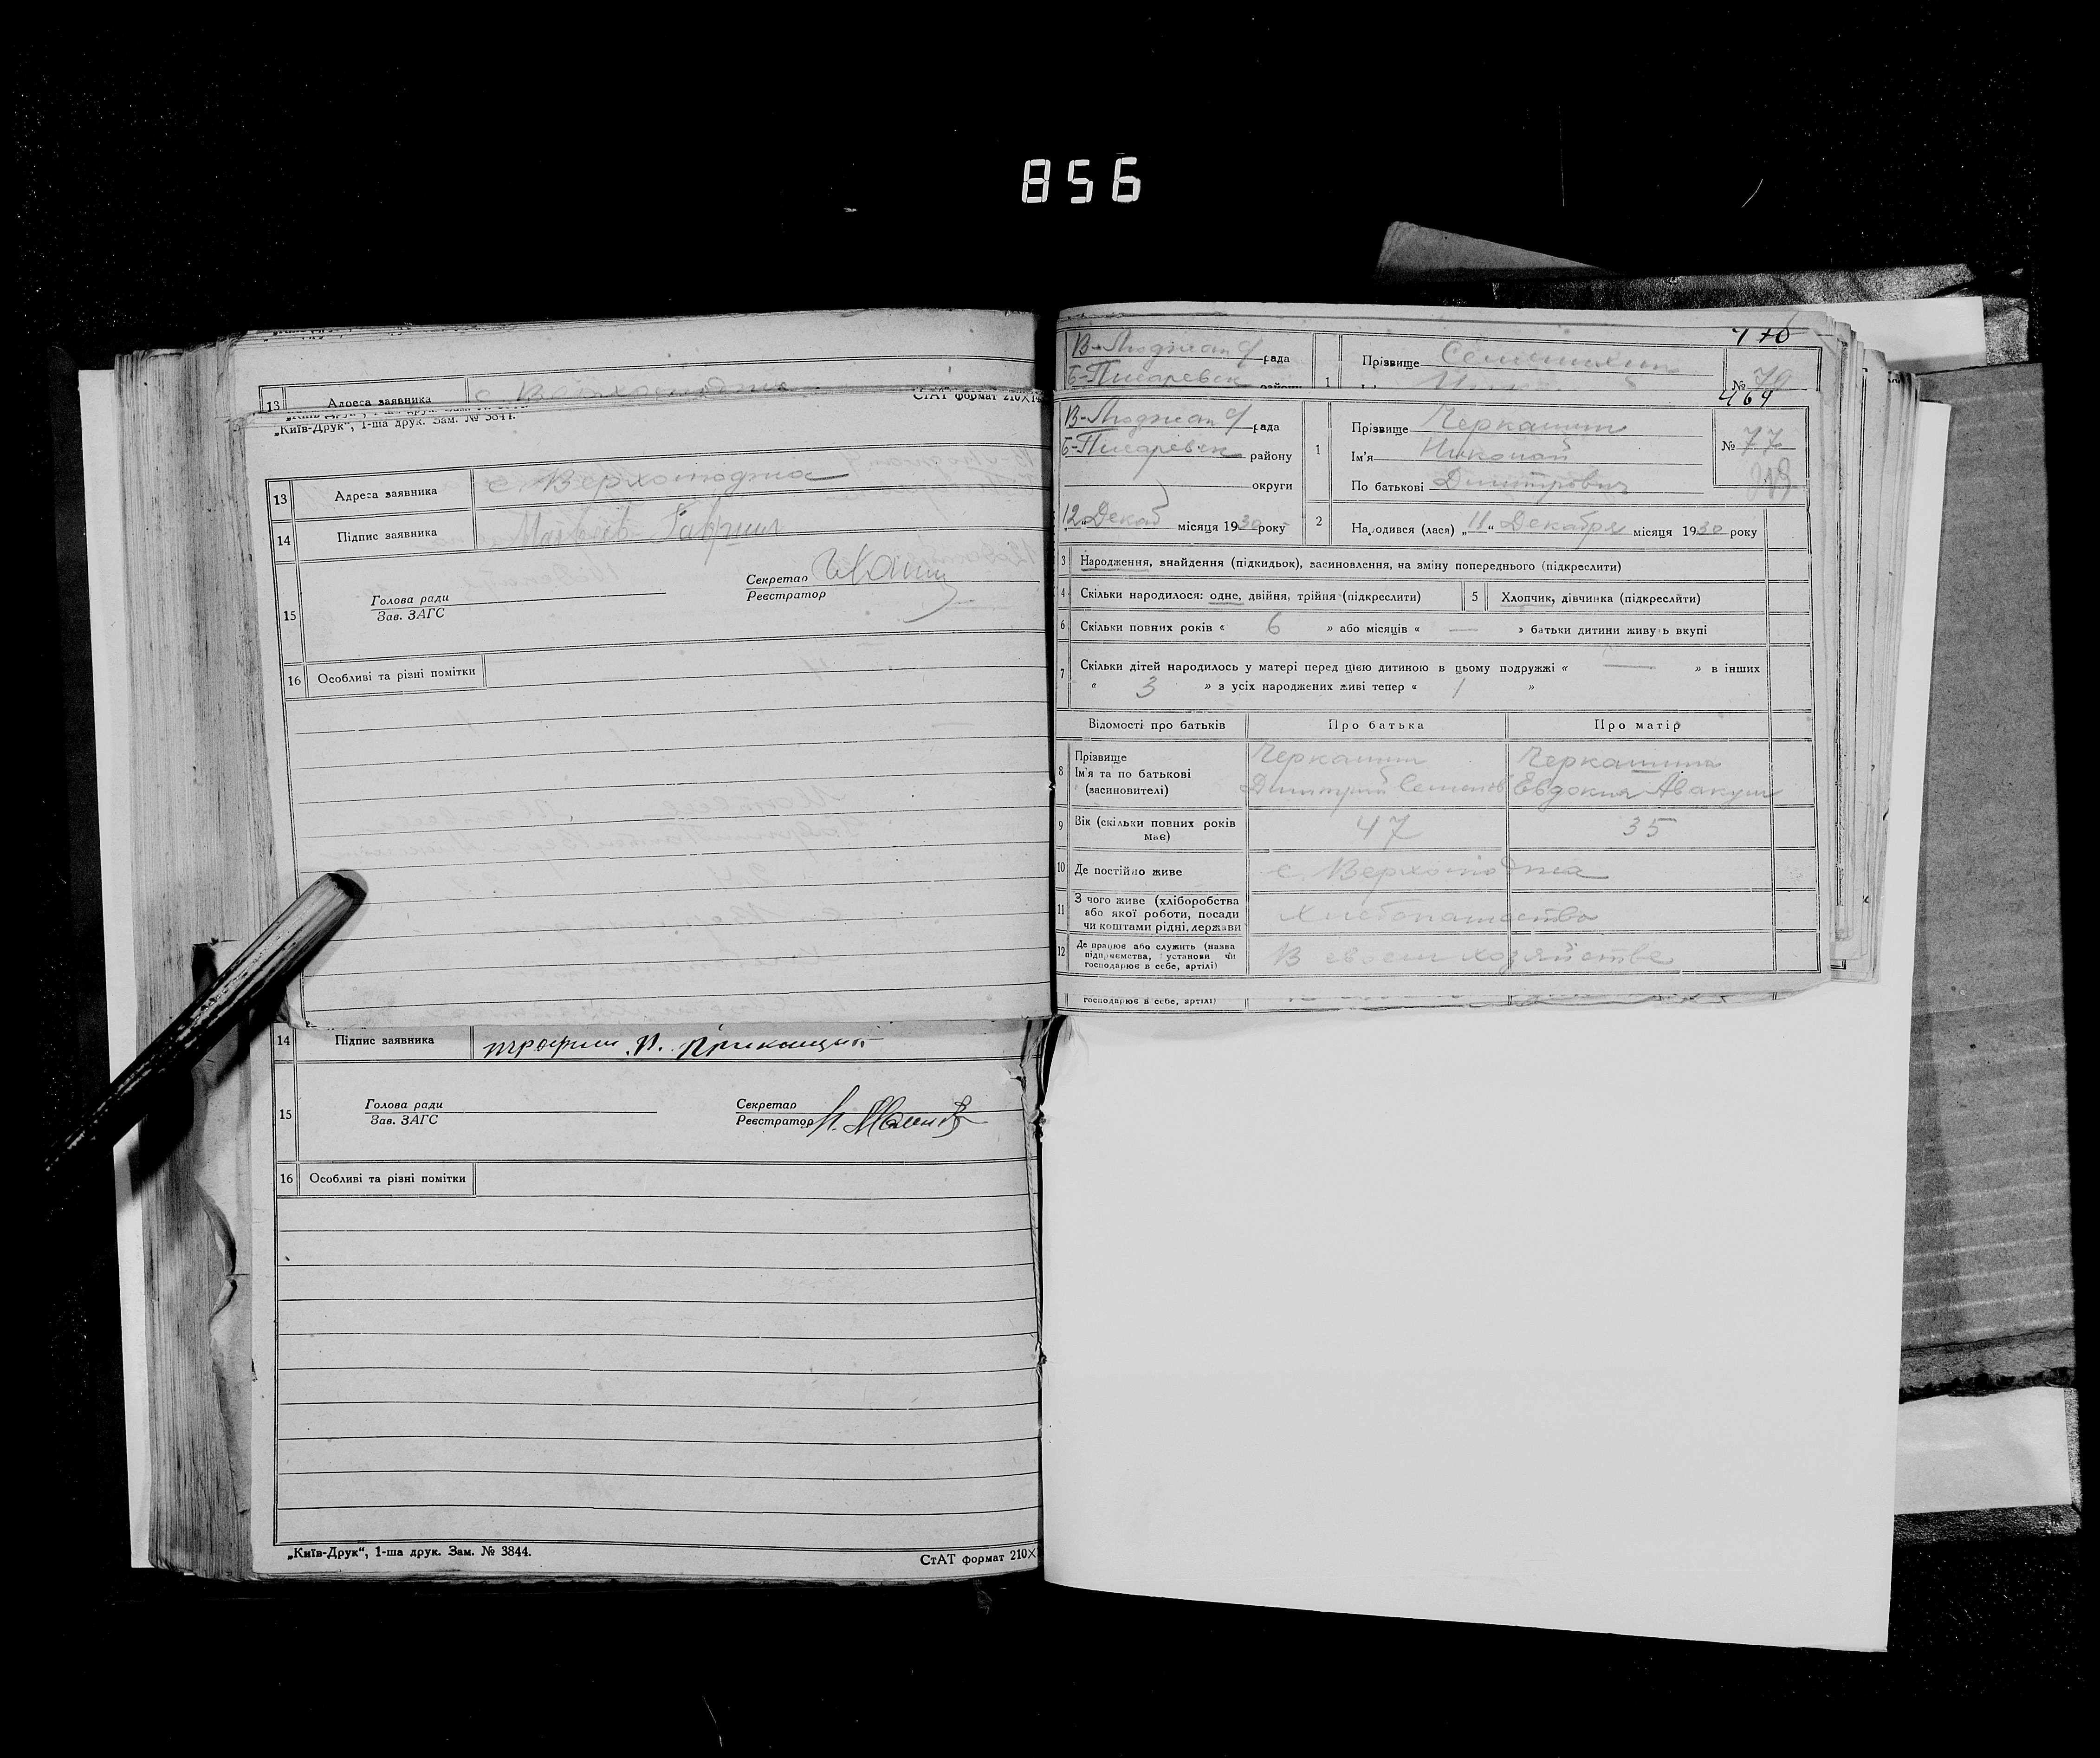 856
13 Адреса заявника
СтАТ формат 210×14
„Київ-Друк“, 1-ша друк. Зам. № 3844.
13 Адреса заявника с. Верхолюджа
14 Підпис заявника Матвеев Гавриил
15 Голова ради
Зав. ЗАГС
Секретар
Реєстратор
16 Особливі та різні помітки
14 Підпис заявника
15 Голова ради
Зав. ЗАГС
Секретар
Реєстратор
16 Особливі та різні помітки
„Київ-Друк“, 1-ша друк. Зам. № 3844.
СтАТ формат 210×
470
В-Люджан рада
Б-Писаревск району
1 Прізвище
№ 78
469
В-Люджан рада
Б-Писаревск району
округи
12 Декаб місяця 1930 року
1 Прізвище Черкашин
Ім'я Николай
По батькові Димитрович
№ 77
2 Народився (лася) „11“ Декабря місяця 1930 року
3 Народження, знайдення (підкидьок), засиновлення, на зміну попереднього (підкреслити)
4 Скільки народилося: одне, двійня, трійня (підкреслити)
5 Хлопчик, дівчинка (підкреслити)
6 Скільки повних років « 6 » або місяців « — » батьки дитини живуть вкупі
7 Скільки дітей народилось у матері перед цією дитиною в цьому подружжі « — » в інших
« 3 » з усіх народжених живі тепер « 1 »
Відомості про батьків Про батька Про матір
8 Прізвище Черкашин Черкашина
Ім'я та по батькові Димитрий Семенов Евдокия Авакум
(засиновителі)
9 Вік (скільки повних років має) 47 35
10 Де постійно живе с. Верхолюджа
11 З чого живе (хліборобства
або якої роботи, посади
чи коштами рідні, держави
Хлебопашество
12 Де працює або служить (назва
підприємства, установи чи
господарює в себе, артілі)
В своем хозяйстве
господарює в себе, артілі)